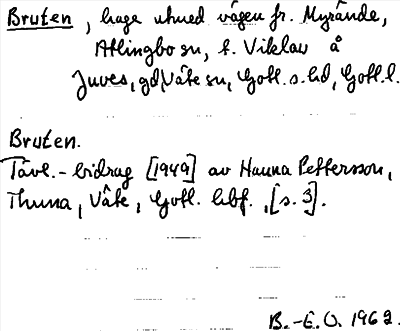 Bruten, hage utmed vägen fr. Myrände,
Atlingbo sn, t. Viklau å
Juves, gd, Väte sn, Gotl. s. hd, Gotl. l.
Bruten.
Tävl.-bidrag [1949] av Hanna Pettersson,
Thuna, Väte, Gotl. hbf., [s. 3].
B.-E.O. 1962.